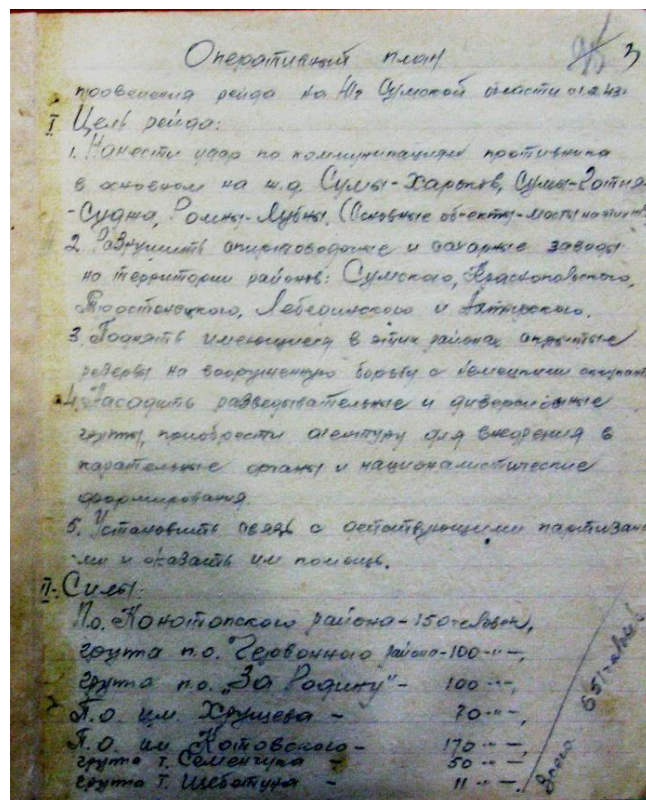 95 3
Оперативный план
проведения рейда на юг Сумской области
I Цель рейда:
1. Нанести удар по коммуникациям противника
в основном на ж.д. Сумы-Харьков, Сумы-Готня,
-Суджа, Ромны-Лубны. (Основные объекты-мосты
2. Разрушить спиртоводочные и сахарные заводы
на территории районов: Сумского, Краснопольского,
Тростянецкого, Лебединского и
3. Поднять имеющиеся в этих районах скрытые
резервы на вооруженную борьбу с немецкими
4. Насадить разведывательные и диверсионные
группы, приобрести агентуру для внедрения в
карательные органы и националистические
формирования.
5. Установить связь с действующими партизана-
-ми и оказать им помощь.
II. Силы:
П.о. Конотопского района - 150 человек,
группа п.о. Червонного района - 100 -"-,
группа п.о. „За Родину" - 100 -"-,
П.О. им. Хрущева - 70 -"-,
П.О. им. Котовского - 170 -"-,
группа т. Семенчука - 50 -"-,
группа т. - 11 -"-,
Всего 651 человек